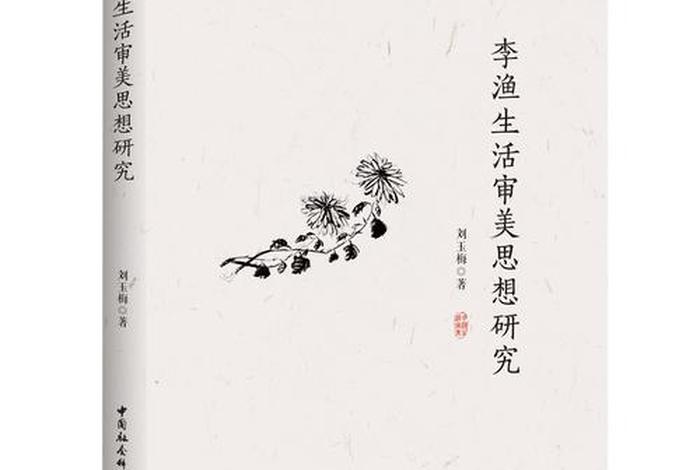 李渔生活审美思想研究
刘玉梅◎著
生活审美思想研究
刘玉梅◎著
中国社会科